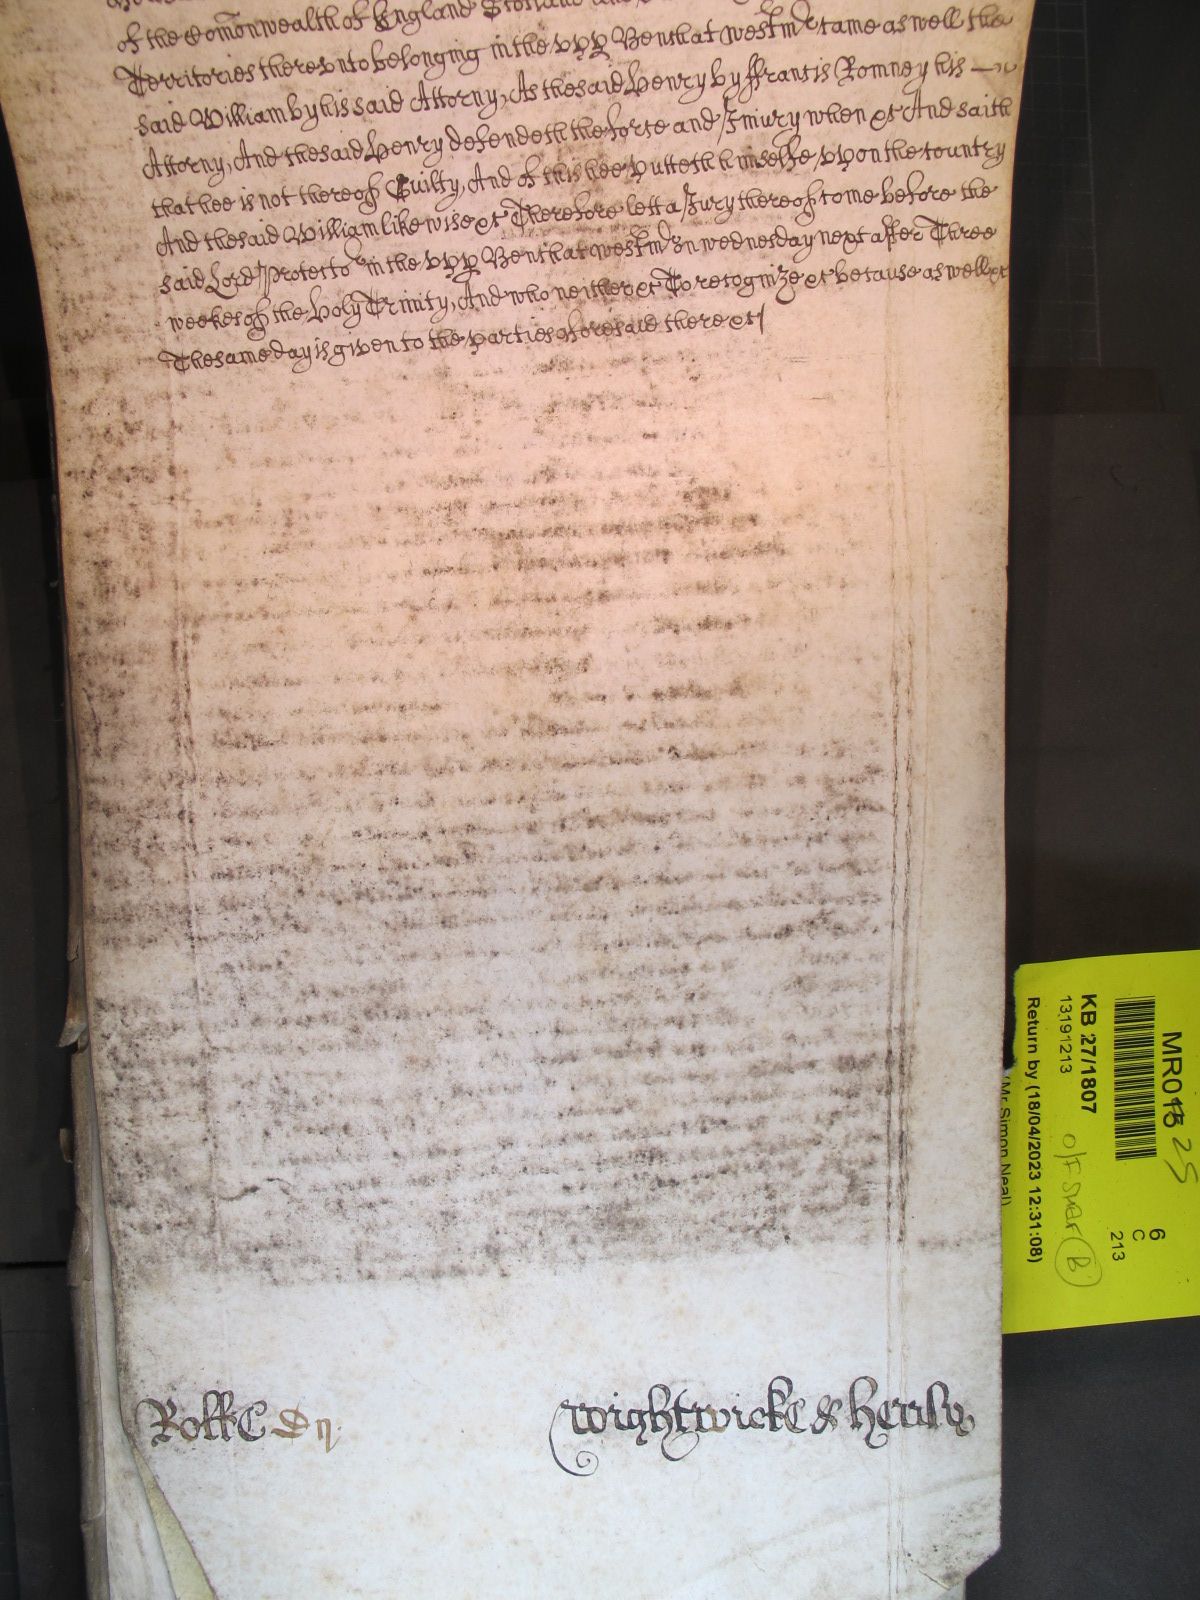 of the Com̃onwealth of England Scotland and
Territories therevnto belonging in the vpp Bench at Westm̃ came as well the
said William by his said Attorny, As the said Henry by ffrancis Romney his —
Attorny, And the said Henry defendeth the force and Iniury when &c And saith
that hee is not thereof Guilty, And of this hee putteth himselfe vpon the Country
And the said William likewise &c Therefore lett a Iury thereof come before the
said Lord Protector in the vpp Bench at Westm̃ on wednesday next after Three
weekes of the Holy Trinity, And who neither &c To recognize &c because as well &c
The same day is given to the parties aforesaid there &c
Rolle
Wightwicke & Henly
MR013 25
KB 27/1807
13,191213
O/F SMAR B
Return by (18/04/2023 12:31:08)
(Mr Simon Neal)
6
C
213